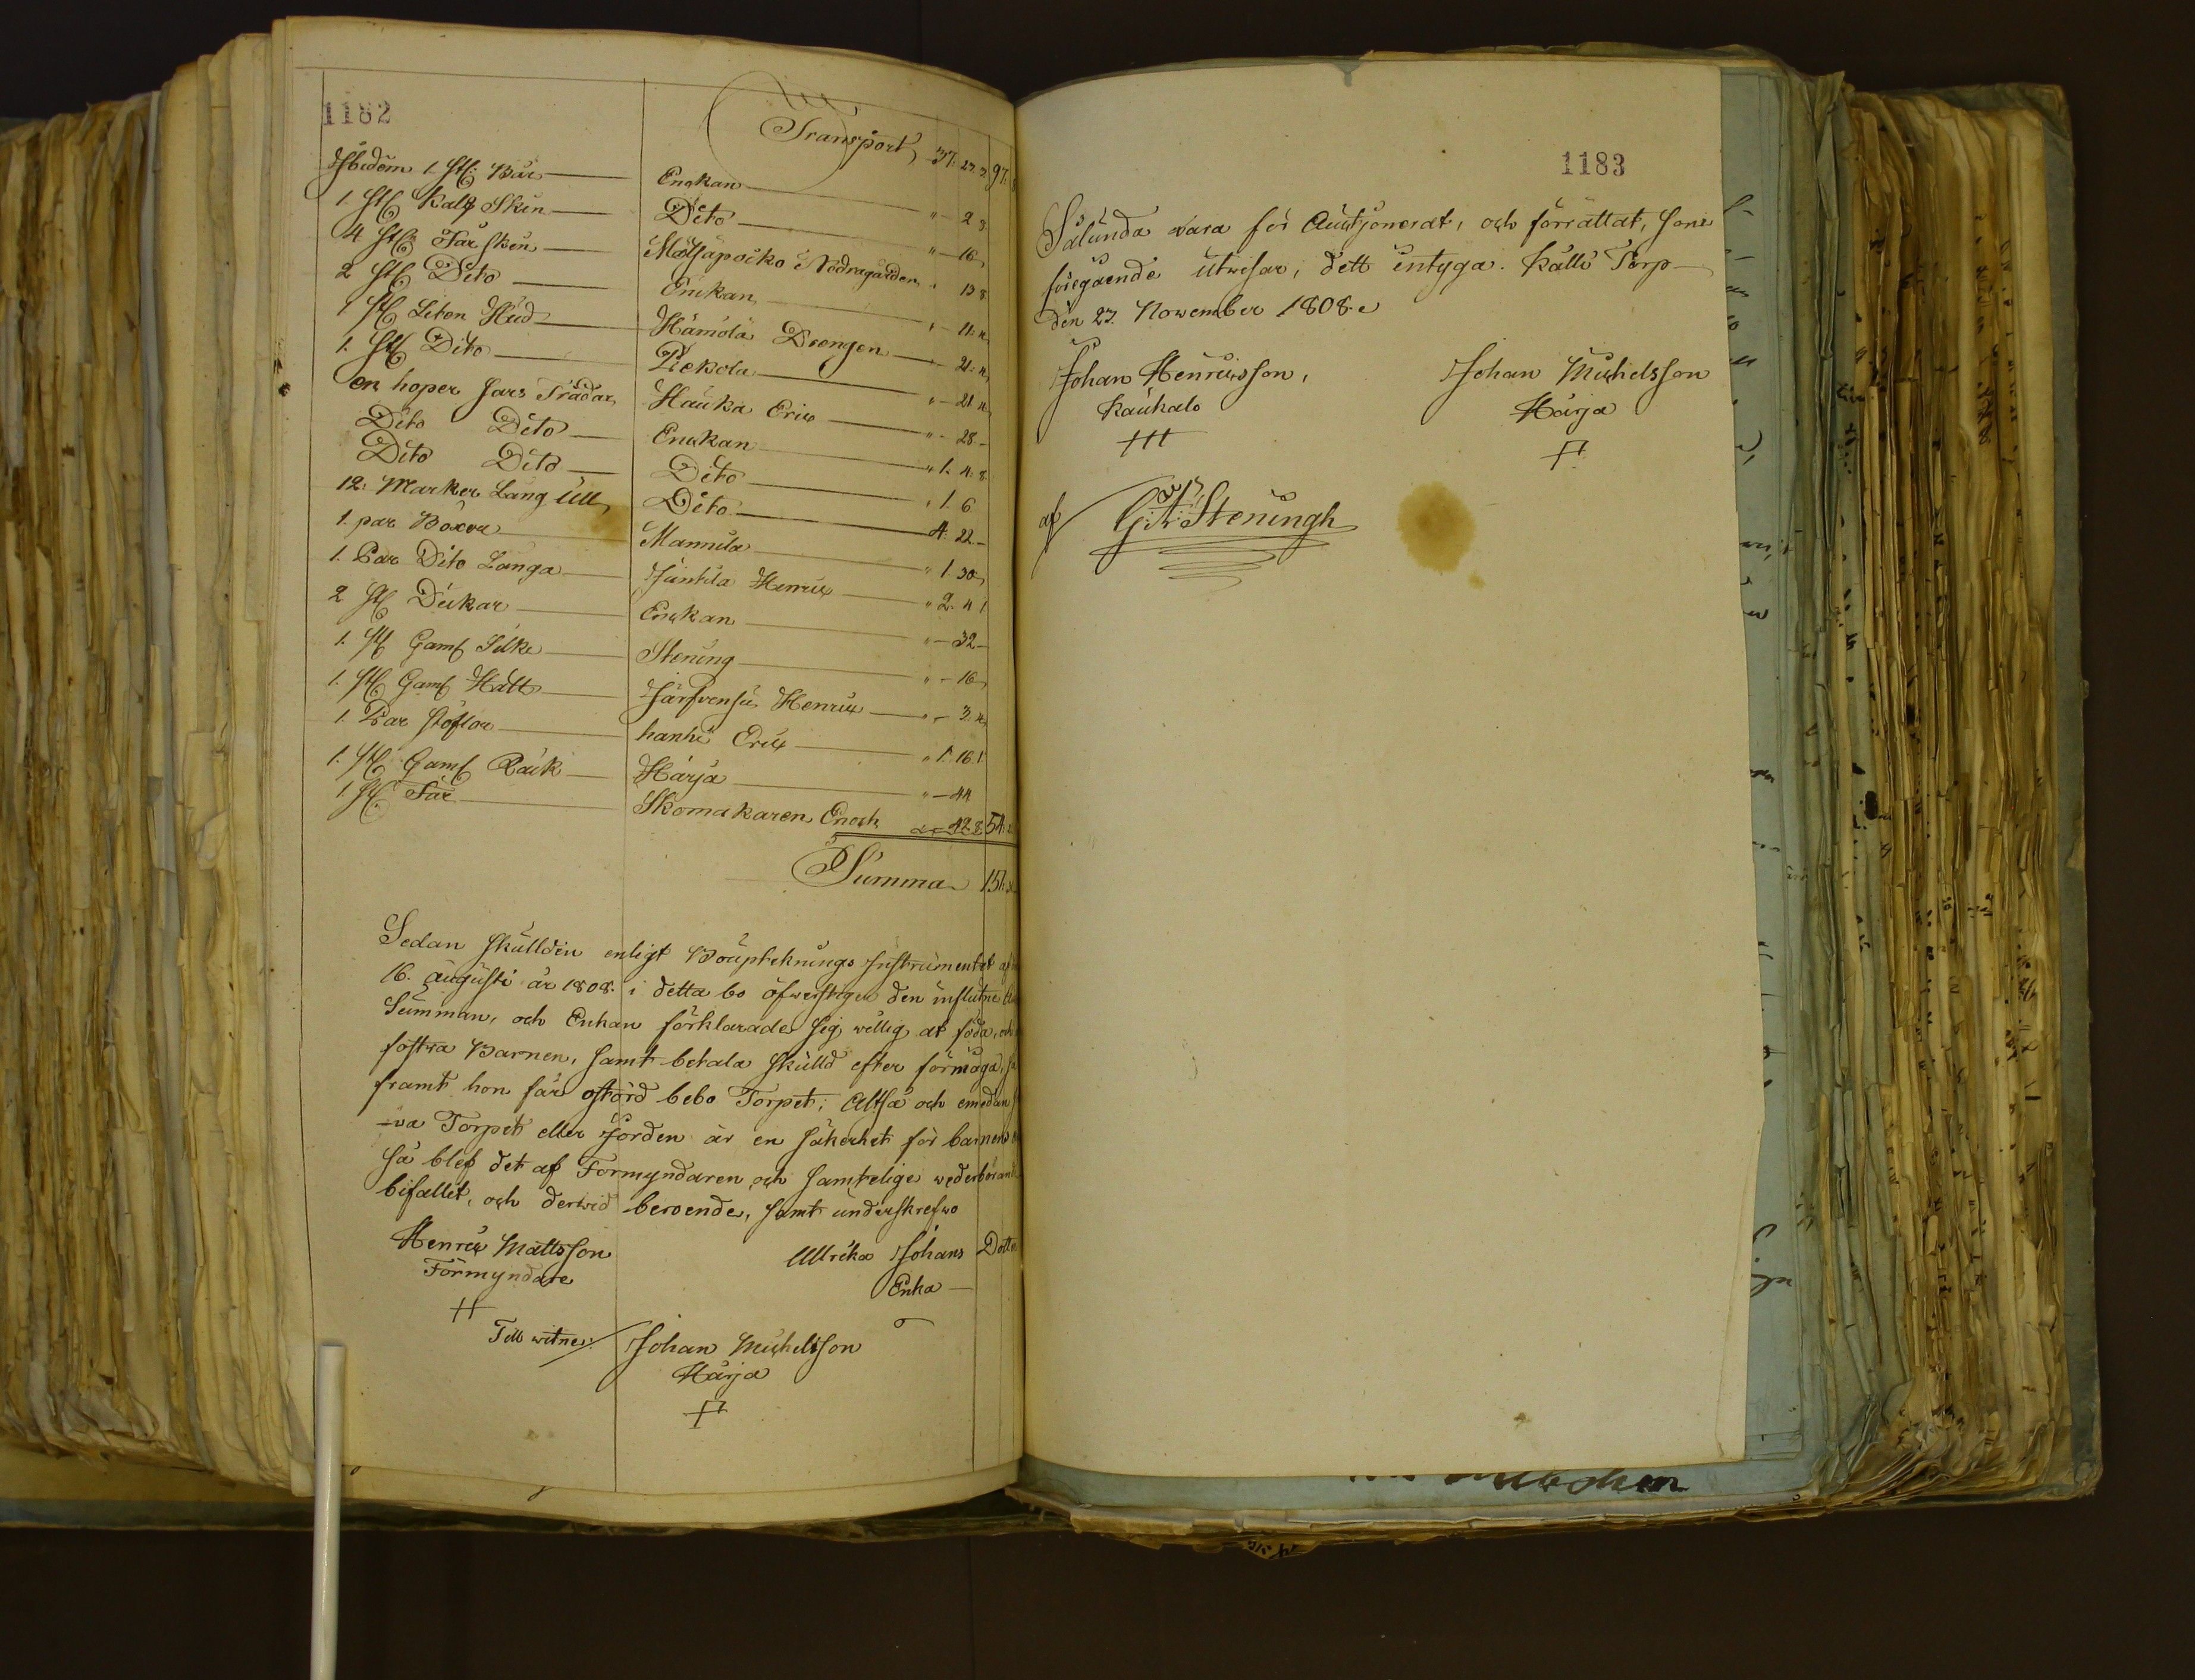 1182
Transport 37. 27. 97.
Ibidem 1 st: Bår Enkan " - 2 8
1. st Kalf Skin Dito " - 16
4 st Får sken Mältäpoiko Nodragården " 13 8
2 st Dito Enkan " 11. 4
1 st Liten Hud Hamola Drengen 21. 4
1. st Dito Piekola " - 21. 4
en hoper fars Trådar Hauka Eric " - 28 -
Dito Dito Enkan " 1. 4. 8
Dito Dito Dito " 1. 6
12. Marker Lång Ull Dito 4. 22 -
1. par Böxor Mannila " 1. 30
1. Par Dito Långa Juntila Henric " 2. 4
2 st Dukar Enkan " - 32 -
1. st Gam Silke Stening " - 16
1. st Gam Hatt Järfvensu Henric " - 3. 4
1. Par stöflor hanhi Eric " 1. 16
1. st Gam Råck Härja " - 44
1 st Får Skomakaren Enoch 42. 8 54.
Summa 151.
Sedan skullden enligt Boupteknings Instrumentet af
16. augusti år 1808. i detta bo öfwerstiger den influtne
Summan, och Enkan förklarade sig willig at föda, och
fostra Barnen, samt betala skulld efter förmåga, så
framt hon får ostörd bebo Torpet; Altså och emedan
-va Torpet eller Jorden är en säkerhet för barnens
så blef det af Förmyndaren och samtelige wederbörande
bifallet, och derwid beroende, samt underskrefwo
Henric Mattsson Ullrika Johans Dotter
Förmyndare Enka
Till witne: Johan Michelsson
Härja
1183
Sålunda vara för Auctjonerat, och förrättat, som
föregående utwisar, dett intyga. Källi Torp
den 27. November 1808.
Johan Henricsson, Johan Michelsson
Kaukalo Härja
af G: A: Steningh